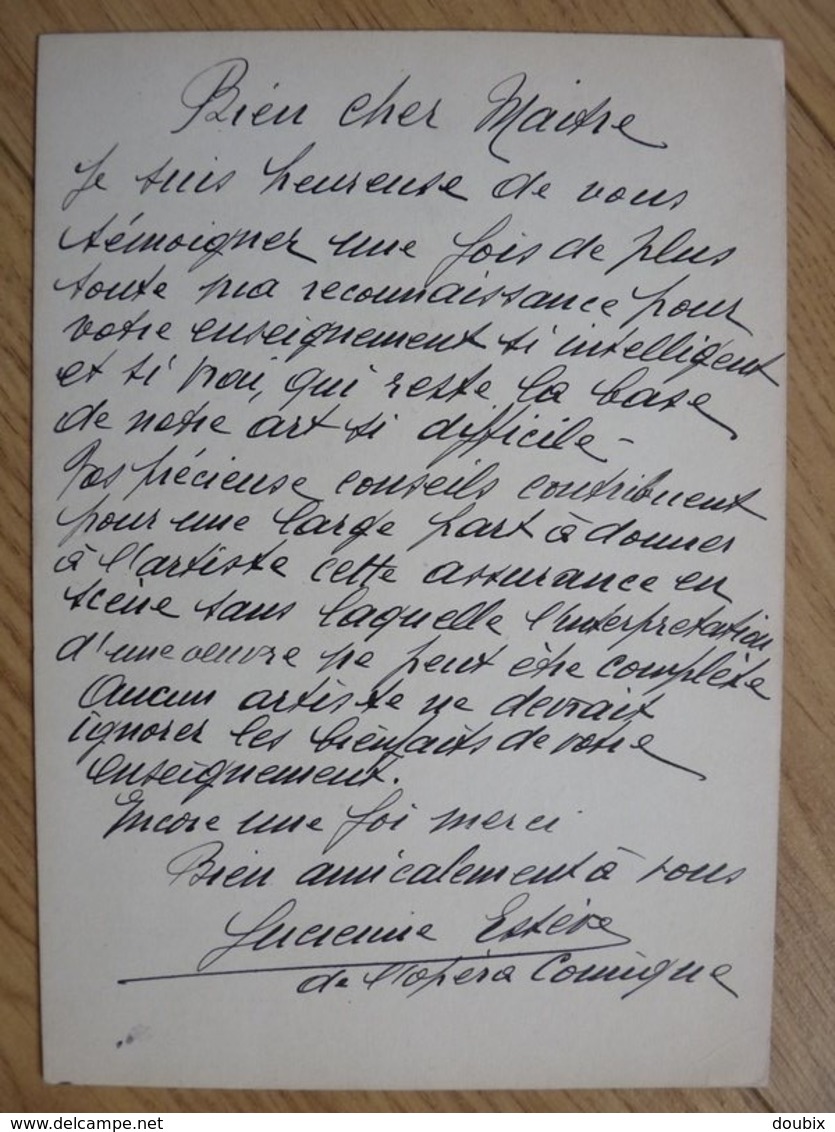 Bien cher Maitre
Je suis heureuse de vous
témoigner une fois de plus
toute ma reconnaissance pour
votre enseignement si intelligent
et si vrai, qui reste la base
de notre art si difficile -
Vos précieuse conseils contribuent
pour une large part à donner
à l'artiste cette assurance en
scène sans laquelle l'interpretation
d'une oeuvre ne peut être complète
Aucun artiste ne devrait
ignorer les bienfaits de votre
enseignement.
Encore une foi merci
Bien amicalement à vous
Lucienne Estève
de l'opéra Comique
delcampe.net
doubix